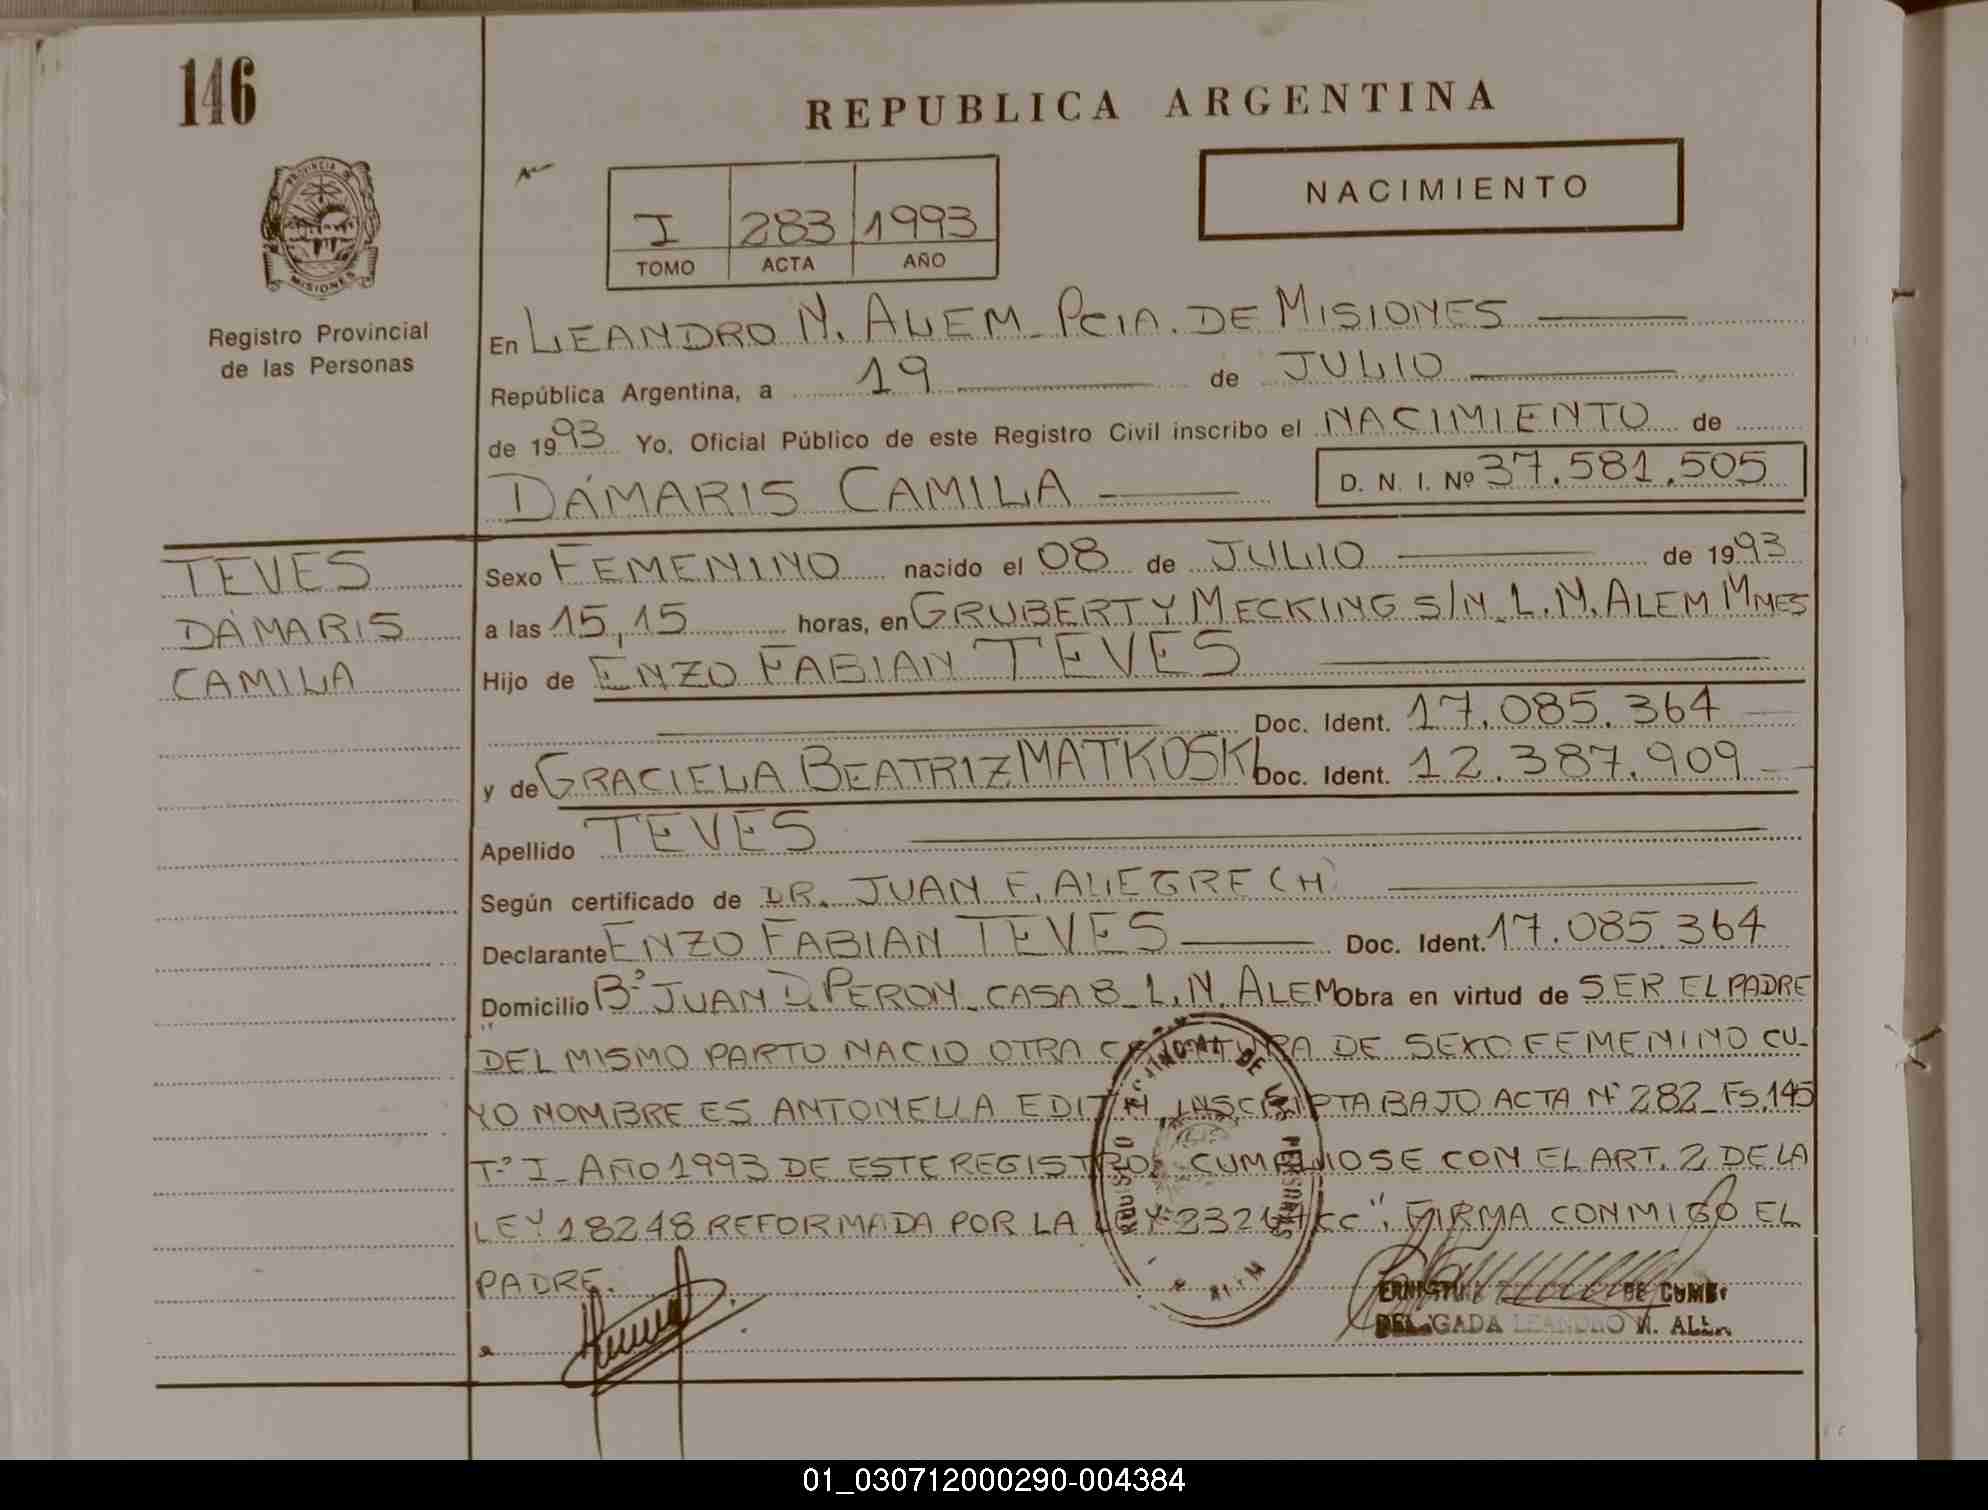 146
REPUBLICA ARGENTINA
NACIMIENTO
I 283 1993
TOMO ACTA AÑO
PROVINCIA DE
MISIONES
Registro Provincial
de las Personas
En LEANDRO N. ALEM - PCIA. DE MISIONES
República Argentina, a 19 de JULIO
de 1993 Yo, Oficial Público de este Registro Civil inscribo el NACIMIENTO de
DÁMARIS CAMILA D. N. I. Nº 37.581.505
TEVES
DÁMARIS
CAMILA
Sexo FEMENINO nacido el 08 de JULIO de 1993
a las 15,15 horas, en GRUBERT Y MECKING S/N - L.N. ALEM Mnes
Hijo de ENZO FABIAN TEVES
Doc. Ident. 17.085.364
y de GRACIELA BEATRIZ MATKOSKI Doc. Ident. 12.387.909
Apellido TEVES
Según certificado de DR. JUAN F. ALEGRE (H)
Declarante ENZO FABIAN TEVES Doc. Ident. 17.085.364
Domicilio Bº JUAN D. PERON - CASA 8 - L.N. ALEM Obra en virtud de SER EL PADRE
"DEL MISMO PARTO NACIO OTRA CRIATURA DE SEXO FEMENINO CU-
YO NOMBRE ES ANTONELLA EDITH, INSCRIPTA BAJO ACTA Nº 282 - Fs. 145
Tº I - AÑO 1993 DE ESTE REGISTRO, CUMPLIOSE CON EL ART. 2 DE LA
LEY 18248 REFORMADA POR LA LEY 23264 CC". FIRMA CONMIGO EL
PADRE.
DE LAS PERSONAS
DELEGADA LEANDRO N. ALEM
01_030712000290-004384